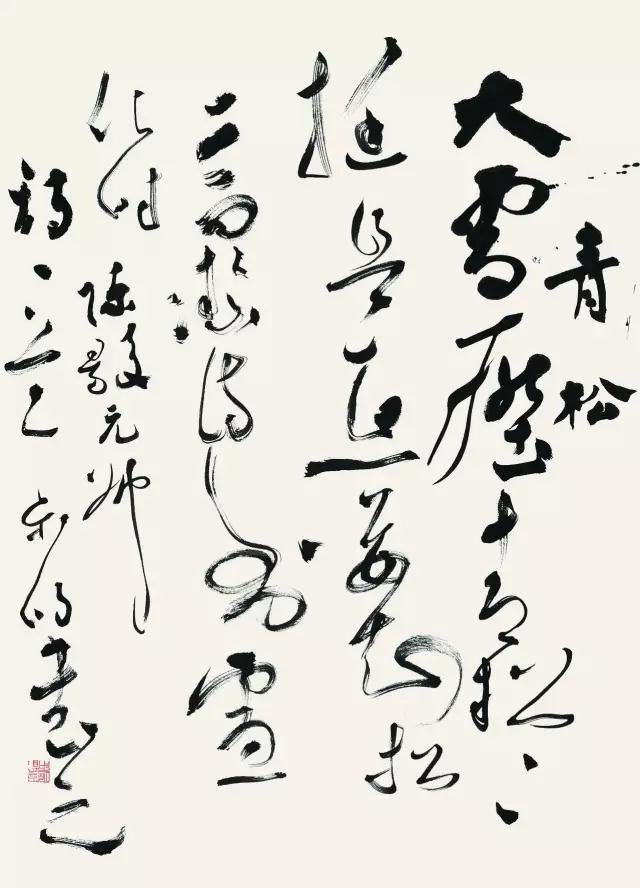 青松
大雪壓青松〻
挺且直要知松
高潔待到雪
化時 陳毅元帥
詩一首
書之